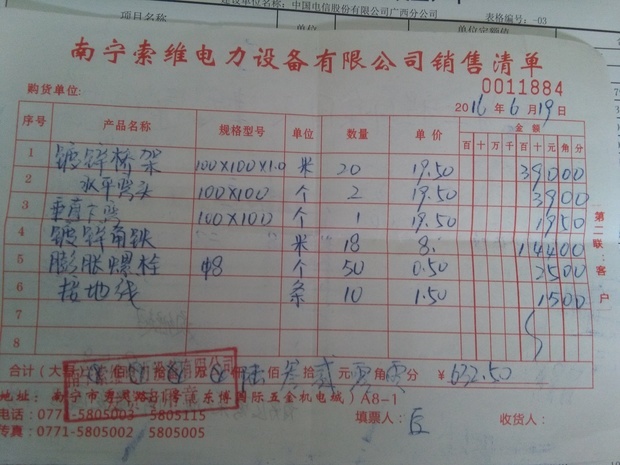 建设单位名称：中国电信股份有限公司广西分公司
表格编号：-03
项目名称
单位定额值
南宁索维电力设备有限公司销售清单
0011884
购货单位：
2016年6月19日
序号 产品名称 规格型号 单位 数量 单价 金额
百 十 万 千 百 十 元 角 分
1 镀锌桥架 100×100×1.0 米 20 19.50 39000
2 水平弯头 100×100 个 2 19.50 3900
3 垂直下弯 100×100 个 1 19.50 1950
4 镀锌角铁 米 18 8. 14400
5 膨胀螺栓 φ8 个 50 0.50 2500
6 接地线 条 10 1.50 1500
7
8
第二联：客户
合计（大写） 陆佰叁拾贰元零角零分 ¥632.50
地址：南宁市 东博国际五金机电城）A8-1
电话：0771-5805003 5805115
传真：0771-5805002 5805005
填票人：
收货人：